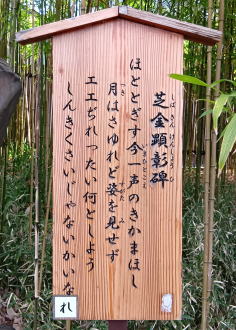 芝金顕彰碑
ほととぎす今一声のきかまほし
月はさゆれど姿を見せず
エエぢれったい何としよう
しんきくさいじゃないかいな
れ